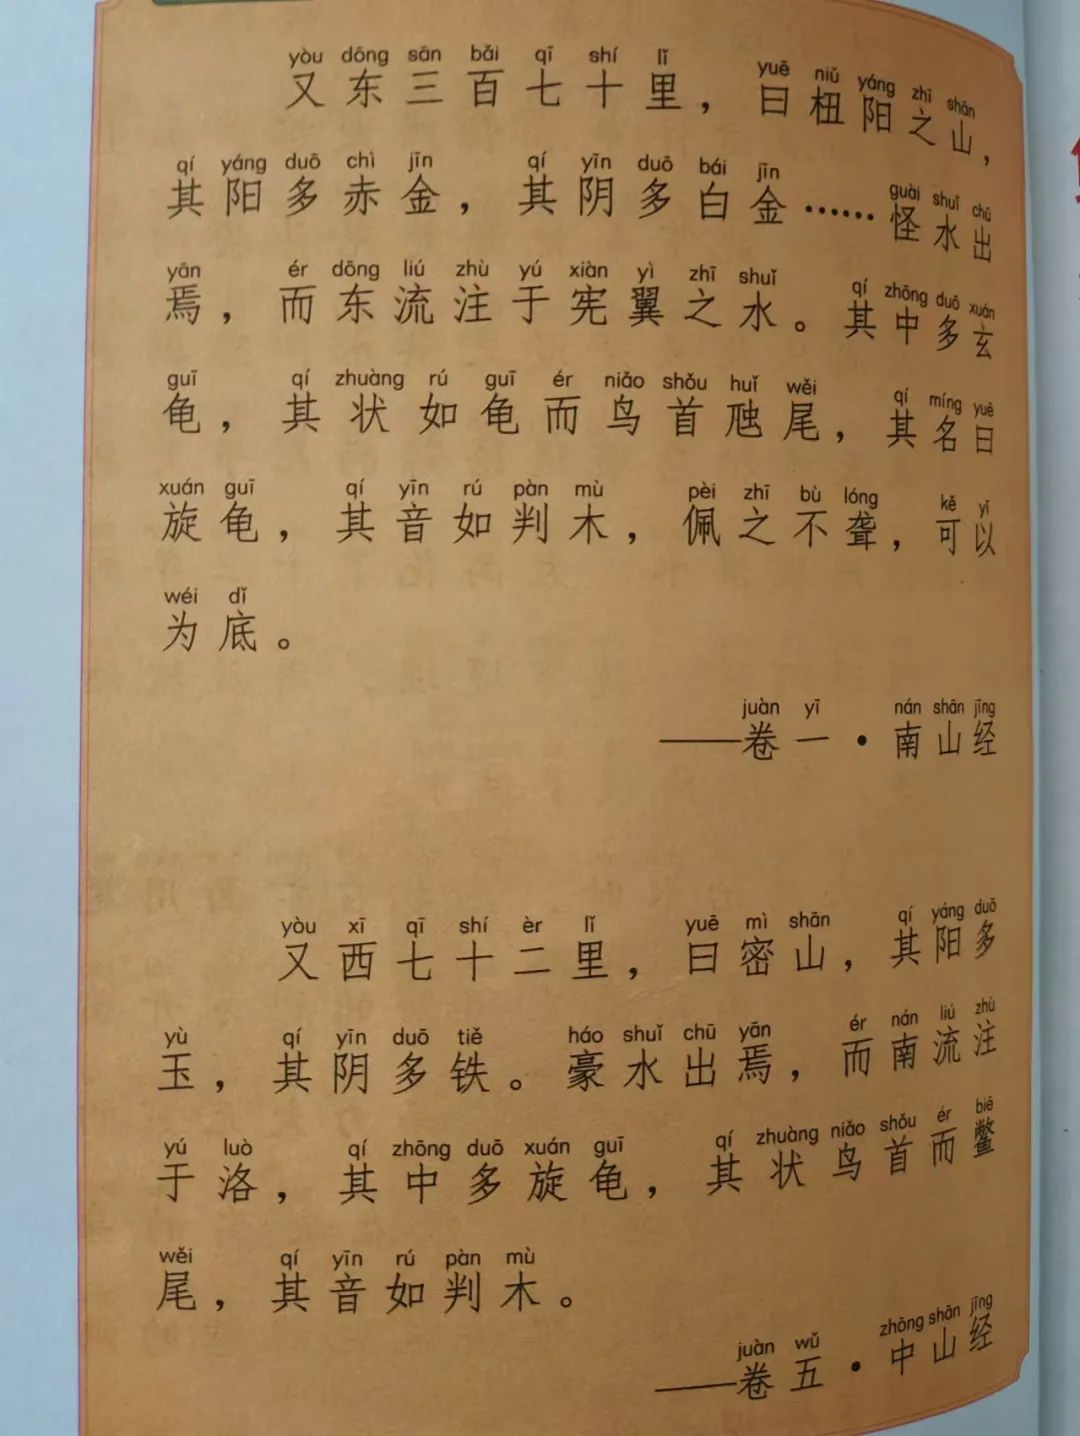 yòu dōng sān bǎi qī shí lǐ yuē niǔ yáng zhī shān
又东三百七十里，曰杻阳之山，
qí yáng duō chì jīn qí yīn duō bái jīn guài shuǐ chū
其阳多赤金，其阴多白金……怪水出
yān ér dōng liú zhù yú xiàn yì zhī shuǐ qí zhōng duō xuán
焉，而东流注于宪翼之水。其中多玄
guī qí zhuàng rú guī ér niǎo shǒu huǐ wěi qí míng yuē
龟，其状如龟而鸟首虺尾，其名曰
xuán guī qí yīn rú pàn mù pèi zhī bù lóng kě yǐ
旋龟，其音如判木，佩之不聋，可以
wéi dǐ
为底。
juàn yī nán shān jīng
——卷一·南山经
yòu xī qī shí èr lǐ yuē mì shān qí yáng duō
又西七十二里，曰密山，其阳多
yù qí yīn duō tiě háo shuǐ chū yān ér nán liú zhù
玉，其阴多铁。豪水出焉，而南流注
yú luò qí zhōng duō xuán guī qí zhuàng niǎo shǒu ér biē
于洛，其中多旋龟，其状鸟首而鳖
wěi qí yīn rú pàn mù
尾，其音如判木。
juàn wǔ zhōng shān jīng
——卷五·中山经